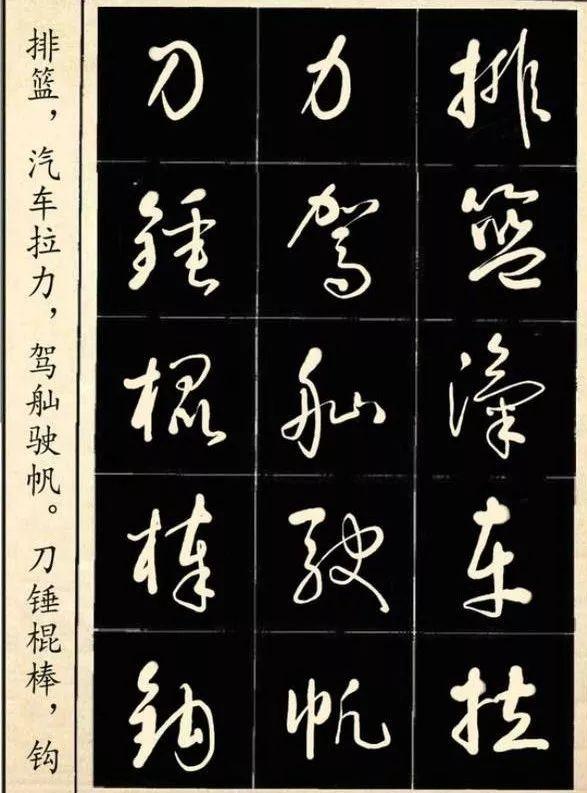 排篮，汽车拉力，驾舢驶帆。刀锤棍棒，钩
排篮汽车拉
力驾舢驶帆
刀锤棍棒钩